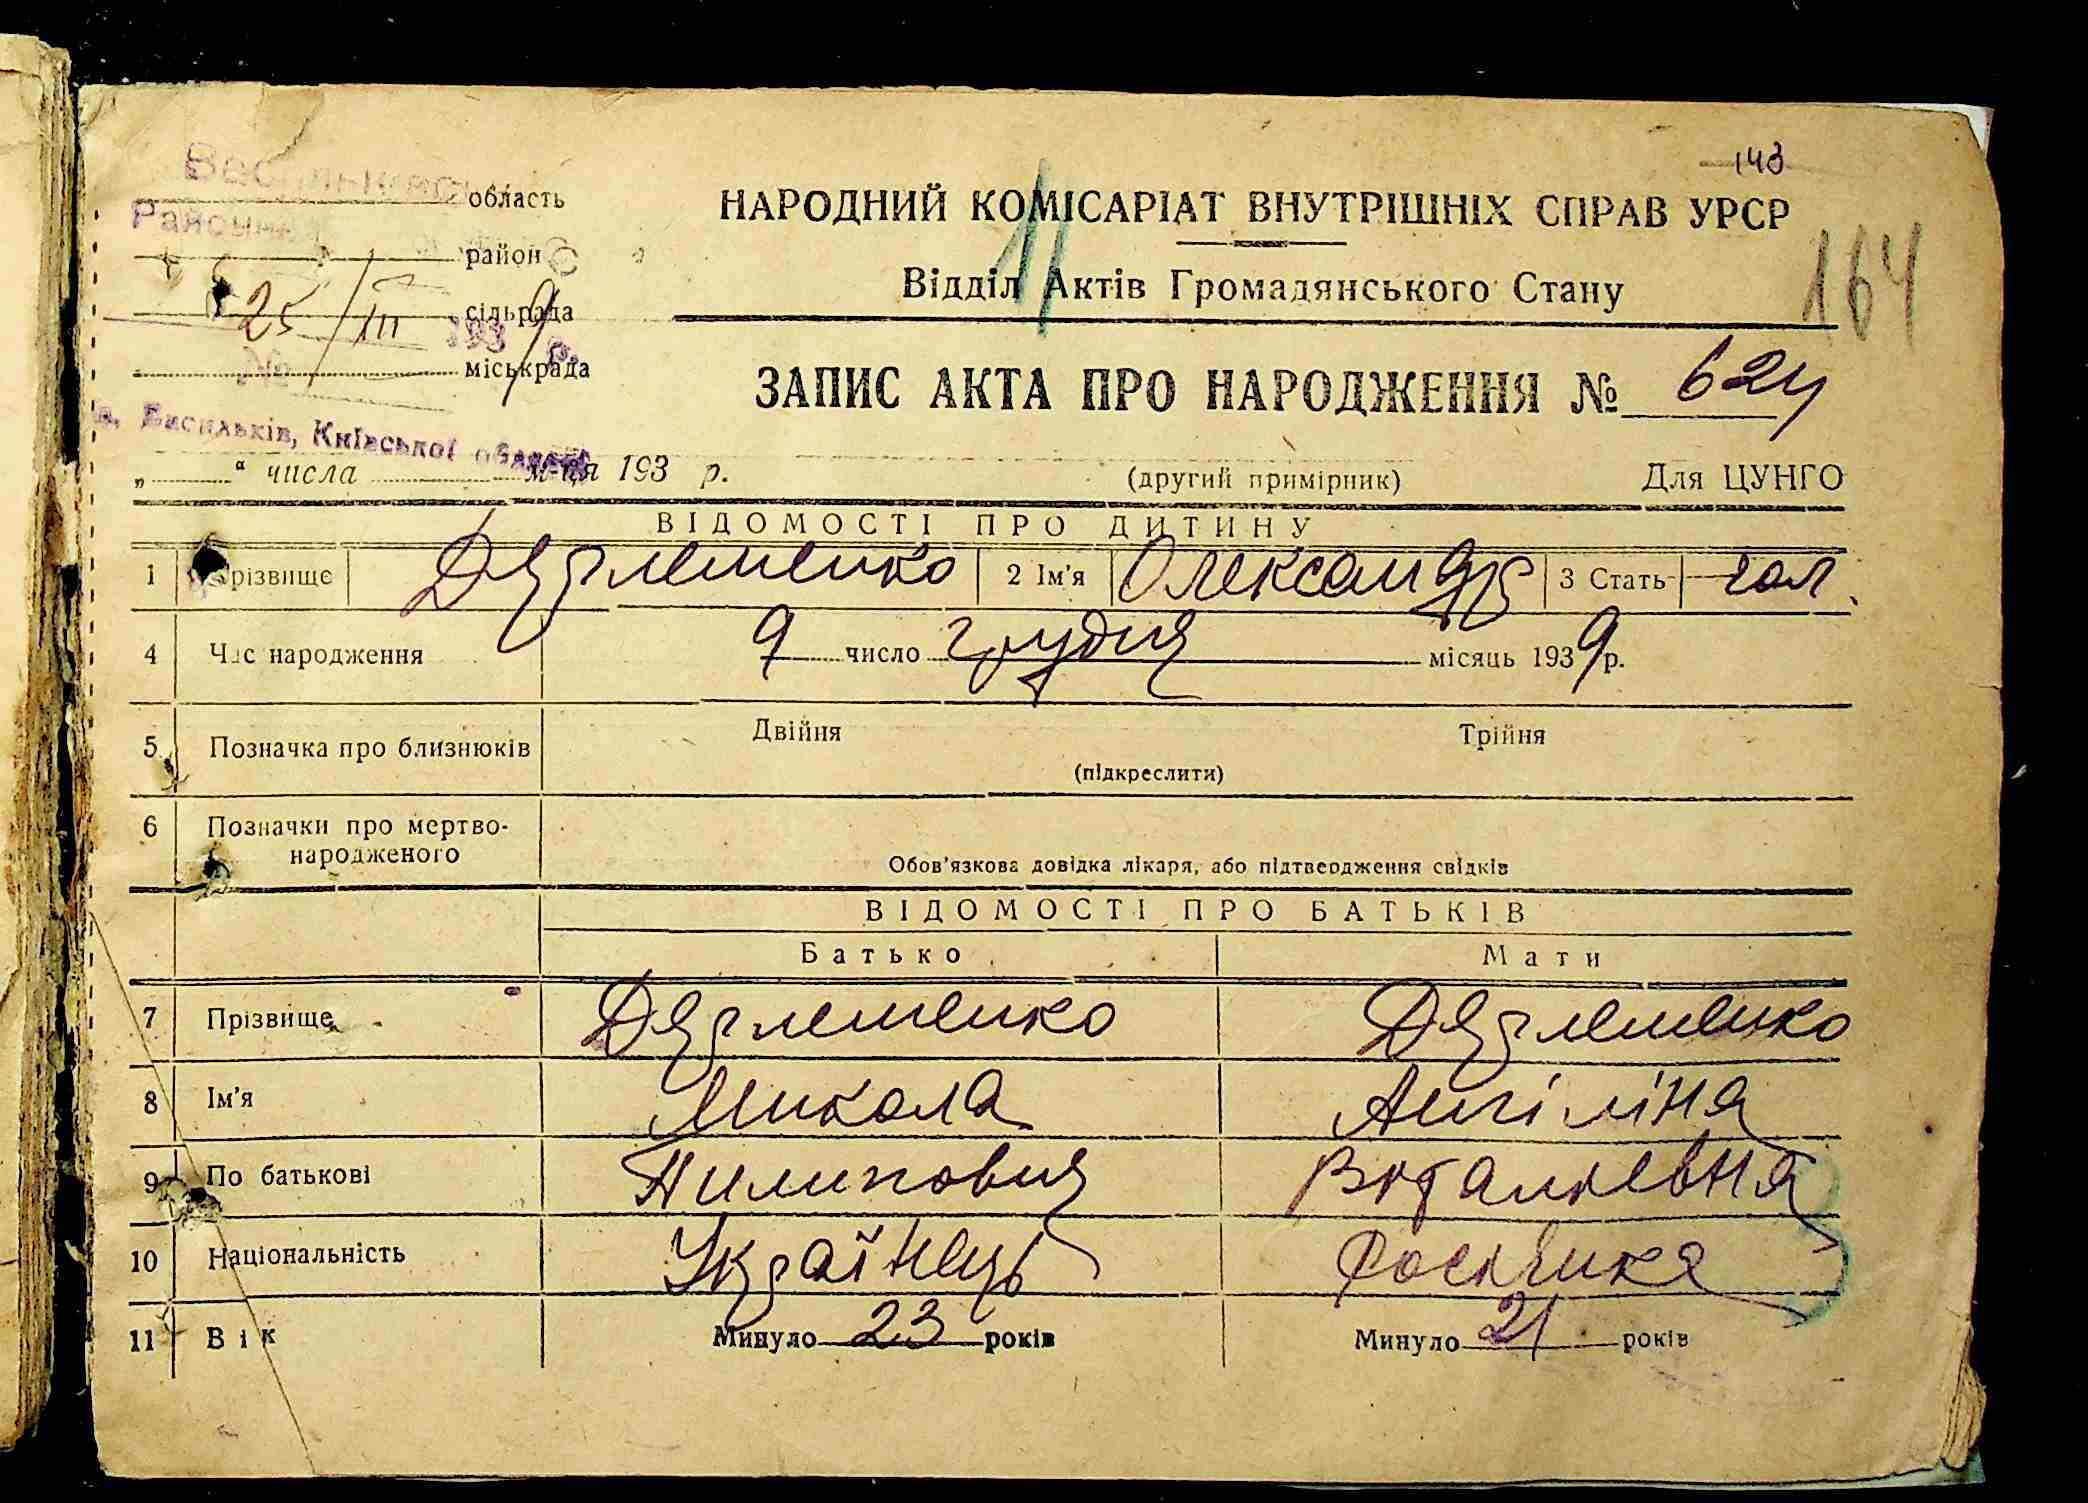 143
область
НАРОДНИЙ КОМІСАРІАТ ВНУТРІШНІХ СПРАВ УРСР
164
11
район
Відділ Актів Громадянського Стану
25/III 1939 р.
сільрада
міськрада
ЗАПИС АКТА ПРО НАРОДЖЕННЯ № 624
м. Васильків, Київської області
„ “ числа м-ця 193 р.
(другий примірник)
Для ЦУНГО
ВІДОМОСТІ ПРО ДИТИНУ
1 Прізвище Дяглеменко 2 Ім'я Олександр 3 Стать чол.
4 Час народження 9 число грудня місяць 1939 р.
5 Позначка про близнюків Двійня Трійня
(підкреслити)
6 Позначки про мертво-
народженого
Обов'язкова довідка лікаря, або підтвердження свідків
ВІДОМОСТІ ПРО БАТЬКІВ
Батько Мати
7 Прізвище Дяглеменко Дяглеменко
8 Ім'я Микола Ангіліна
9 По батькові Пилипович Віталієвна
10 Національність Українець Росіянка
11 Вік Минуло 23 років Минуло 21 років